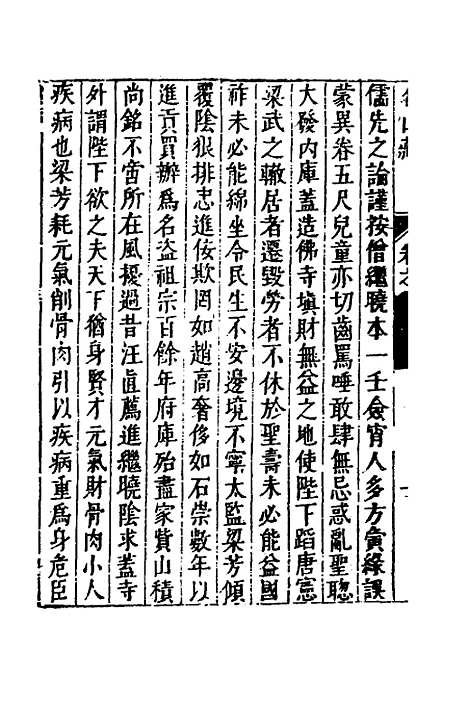 名山藏 卷之
儒先之論謹按僧繼曉本一壬僉宵人多方夤緣誤
蒙異眷五尺兒童亦切齒罵唾敢肆無忌惑亂聖聰
大發內庫蓋造佛寺填財無益之地使陛下蹈唐憲
梁武之轍居者遷毀勞者不休於聖壽未必能益國
祚未必能綿坐令民生不安邊境不寧太監梁芳傾
覆陰狠排忠進佞欺罔如趙高奢侈如石崇數年以
進貢買辦為名盜祖宗百餘年府庫殆盡家貲山積
尚銘不啻所在風擾過昔汪直薦進繼曉陰求蓋寺
外謂陛下欲之夫天下猶身賢才元氣財骨肉小人
疾病也梁芳耗元氣削骨肉引以疾病重為身危臣